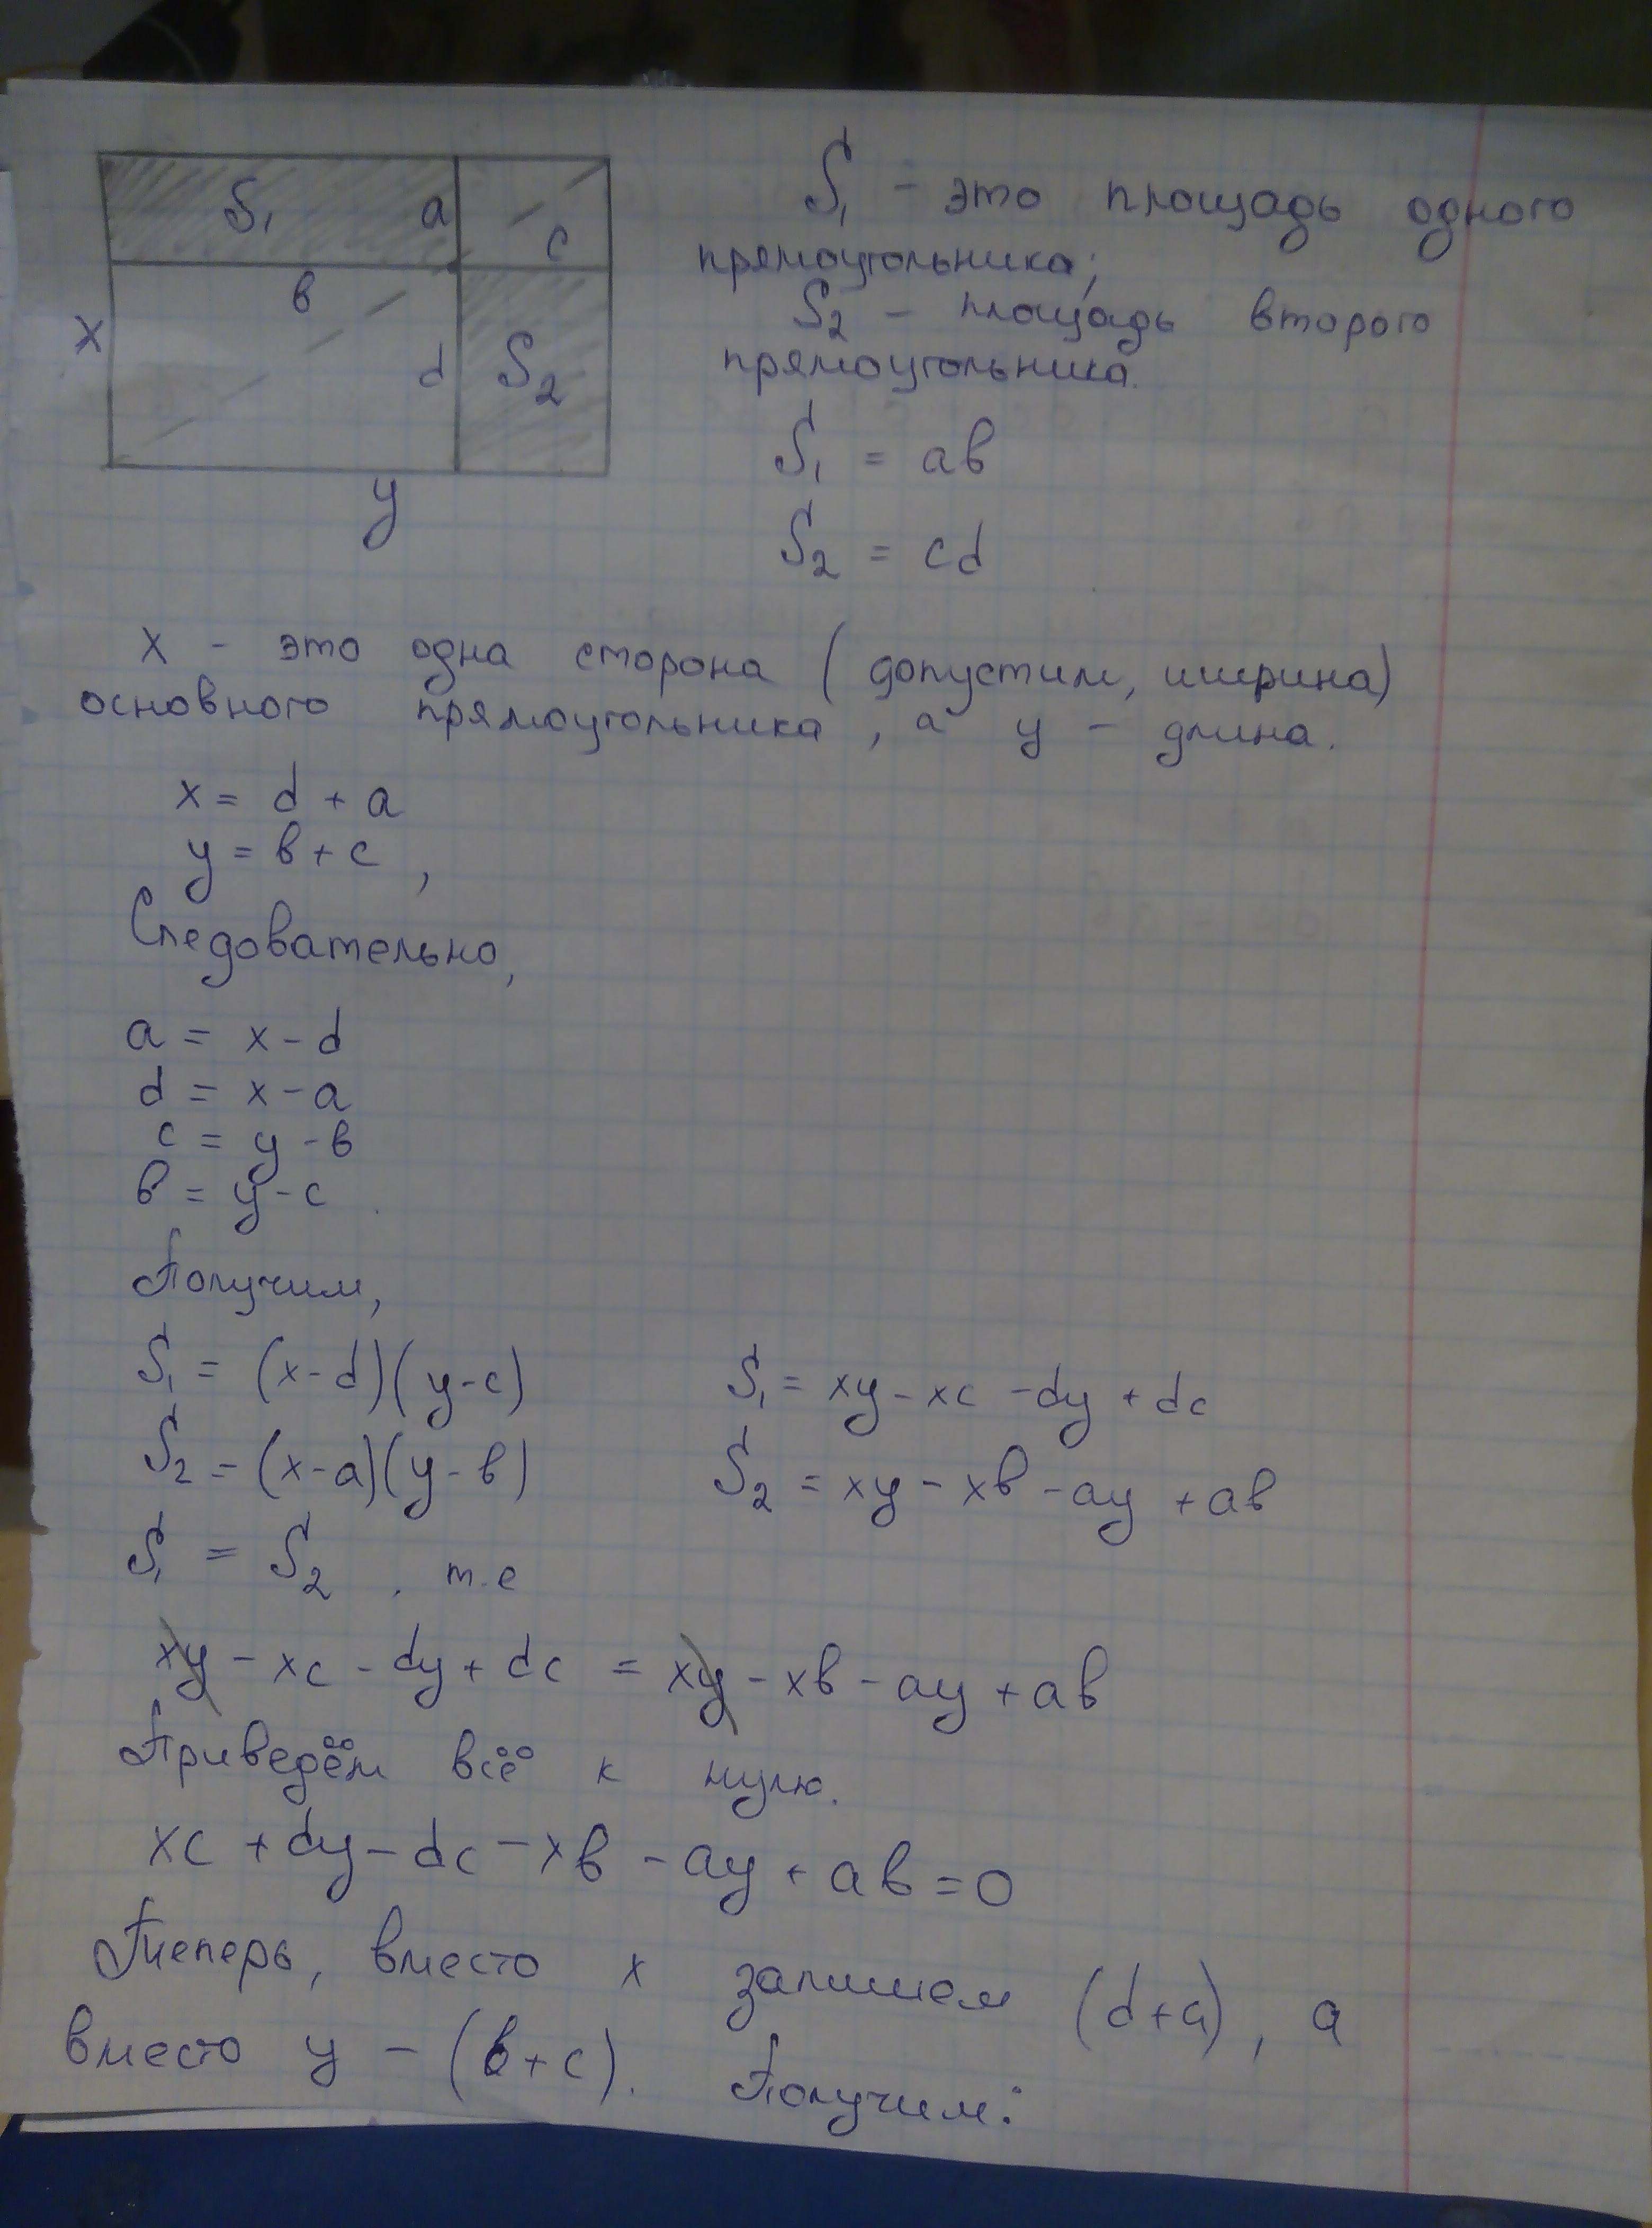 S₁
a
c
в
x
d
S₂
y
S₁ - это площадь одного
прямоугольника;
S₂ - площадь второго
прямоугольника.
S₁ = aв
S₂ = cd
x - это одна сторона (допустим, ширина)
основного прямоугольника, а y - длина.
x = d + a
y = в + c ,
Следовательно,
a = x - d
d = x - a
c = y - в
в = y - c .
Получим,
S₁ = (x-d)(y-c) S₁ = xy - xc - dy + dc
S₂ = (x-a)(y-в) S₂ = xy - xв - ay + aв
S₁ = S₂ , т.е
xy - xc - dy + dc = xy - xв - ay + aв
Приведём всё к нулю.
xc + dy - dc - xв - ay + aв = 0
Теперь, вместо x запишем (d+a), а
вместо y - (в+c). Получим: